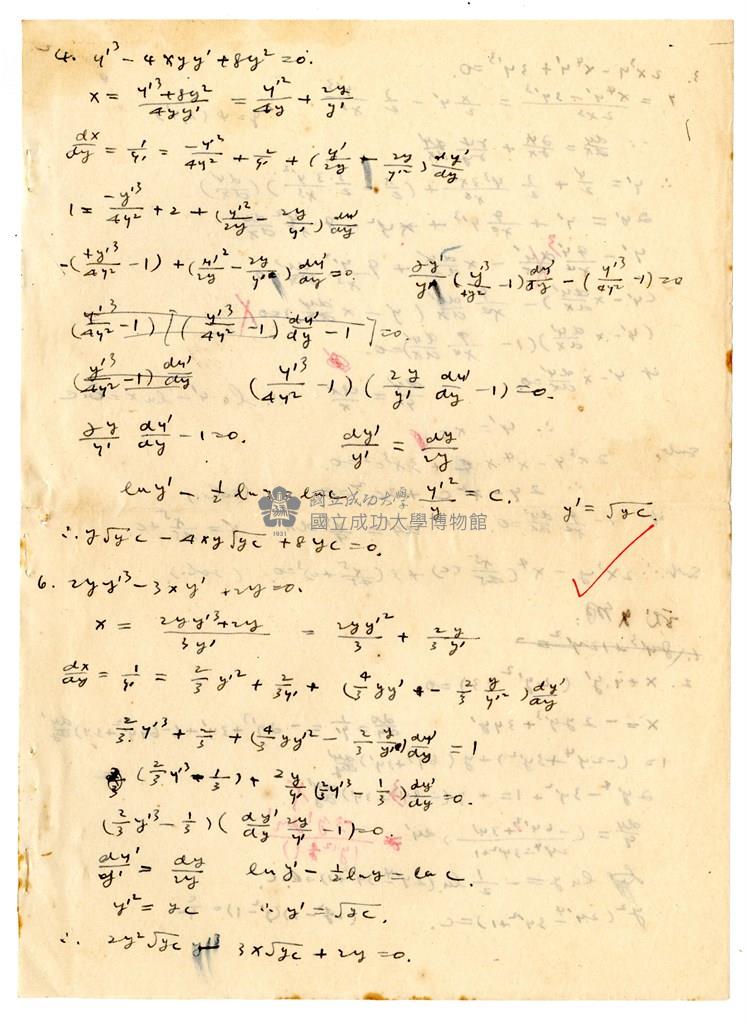 4. y'³ - 4xyy' + 8y² = 0.
x = (y'³ + 8y²)/(4yy') = y'²/(4y) + 2y/y'
dx/dy = 1/y' = -y'²/(4y²) + 2/y' + (y'/(2y) - 2y/y'²) dy'/dy
1 = -y'³/(4y²) + 2 + (y'²/(2y) - 2y/y') dy'/dy
-(y'³/(4y²) - 1) + (y'²/(2y) - 2y/y') dy'/dy = 0. 2y/y' (y'³/(4y²) - 1) dy'/dy - (y'³/(4y²) - 1) = 0
(y'³/(4y²) - 1) [(y'³/(4y²) - 1) dy'/dy - 1] = 0.
(y'³/(4y²) - 1) dy'/dy (y'³/(4y²) - 1)(2y/y' dy'/dy - 1) = 0.
2y/y' dy'/dy - 1 = 0. dy'/y' = dy/2y
ln y' - ½ ln y = ln c y'²/y = c. y' = √yc.
國立成功大學
國立成功大學博物館
1931
∴ y√yc - 4xy√yc + 8yc = 0.
6. 2yy'³ - 3xy' + 2y = 0.
x = (2yy'³ + 2y)/(3y') = 2yy'²/3 + 2y/(3y')
dx/dy = 1/y' = 2/3 y'² + 2/(3y') + (4/3 yy' - 2/3 y/y'²) dy'/dy
2/3 y'³ + 2/3 + (4/3 yy'² - 2/3 y/y') dy'/dy = 1
(2/3 y'³ - 1/3) + 2y/y' (2/3 y'³ - 1/3) dy'/dy = 0.
(2/3 y'³ - 1/3)(dy'/dy 2y/y' - 1) = 0.
dy'/y' = dy/2y ln y' - ½ ln y = ln c.
y'² = yc ∴ y' = √yc.
∴ 2y²√yc 3x√yc + 2y = 0.